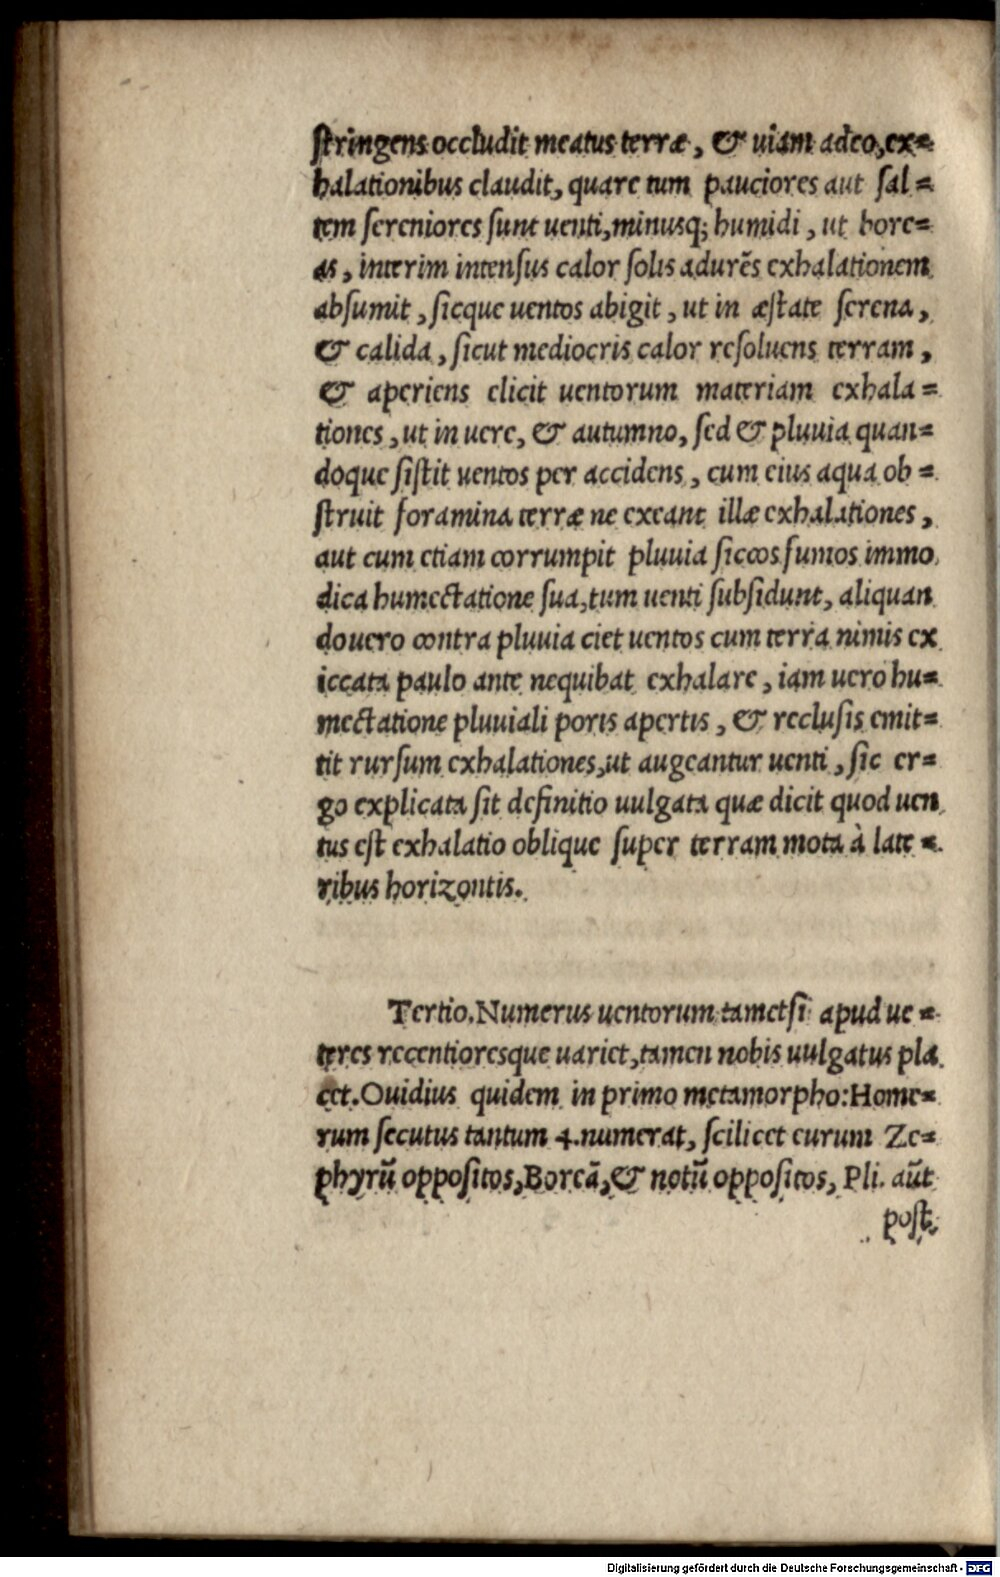 stringens occludit meatus terræ, & uiam adeo, ex=
halationibus claudit, quare tum pauciores aut sal=
tem sereniores sunt uenti, minusq; humidi, ut bore=
as, interim intensus calor solis adurẽs exhalationem
absumit, sicque uentos abigit, ut in æstate serena,
& calida, sicut mediocris calor resoluens terram,
& aperiens elicit uentorum materiam exhala=
tiones, ut in uere, & autumno, sed & pluuia quan=
doque sistit uentos per accidens, cum eius aqua ob=
struit foramina terræ ne exeant illæ exhalationes,
aut cum etiam corrumpit pluuia siccos fumos immo
dica humectatione sua, tum uenti subsidunt, aliquan
do uero contra pluuia ciet uentos cum terra nimis ex
iccata paulo ante nequibat exhalare, iam uero hu=
mectatione pluuiali poris apertis, & reclusis emit=
tit rursum exhalationes, ut augeantur uenti, sic er=
go explicata sit definitio uulgata quæ dicit quod uen
tus est exhalatio oblique super terram mota à late=
ribus horizontis.
Tertio. Numerus uentorum tametsi apud ue=
teres recentioresque uariet, tamen nobis uulgatus pla
cet. Ouidius quidem in primo metamorpho: Home=
rum secutus tantum 4. numerat, scilicet eurum Ze=
phyrũ oppositos, Boreã, & notũ oppositos, Pli. aũt
post
Digitalisierung gefördert durch die Deutsche Forschungsgemeinschaft - DFG